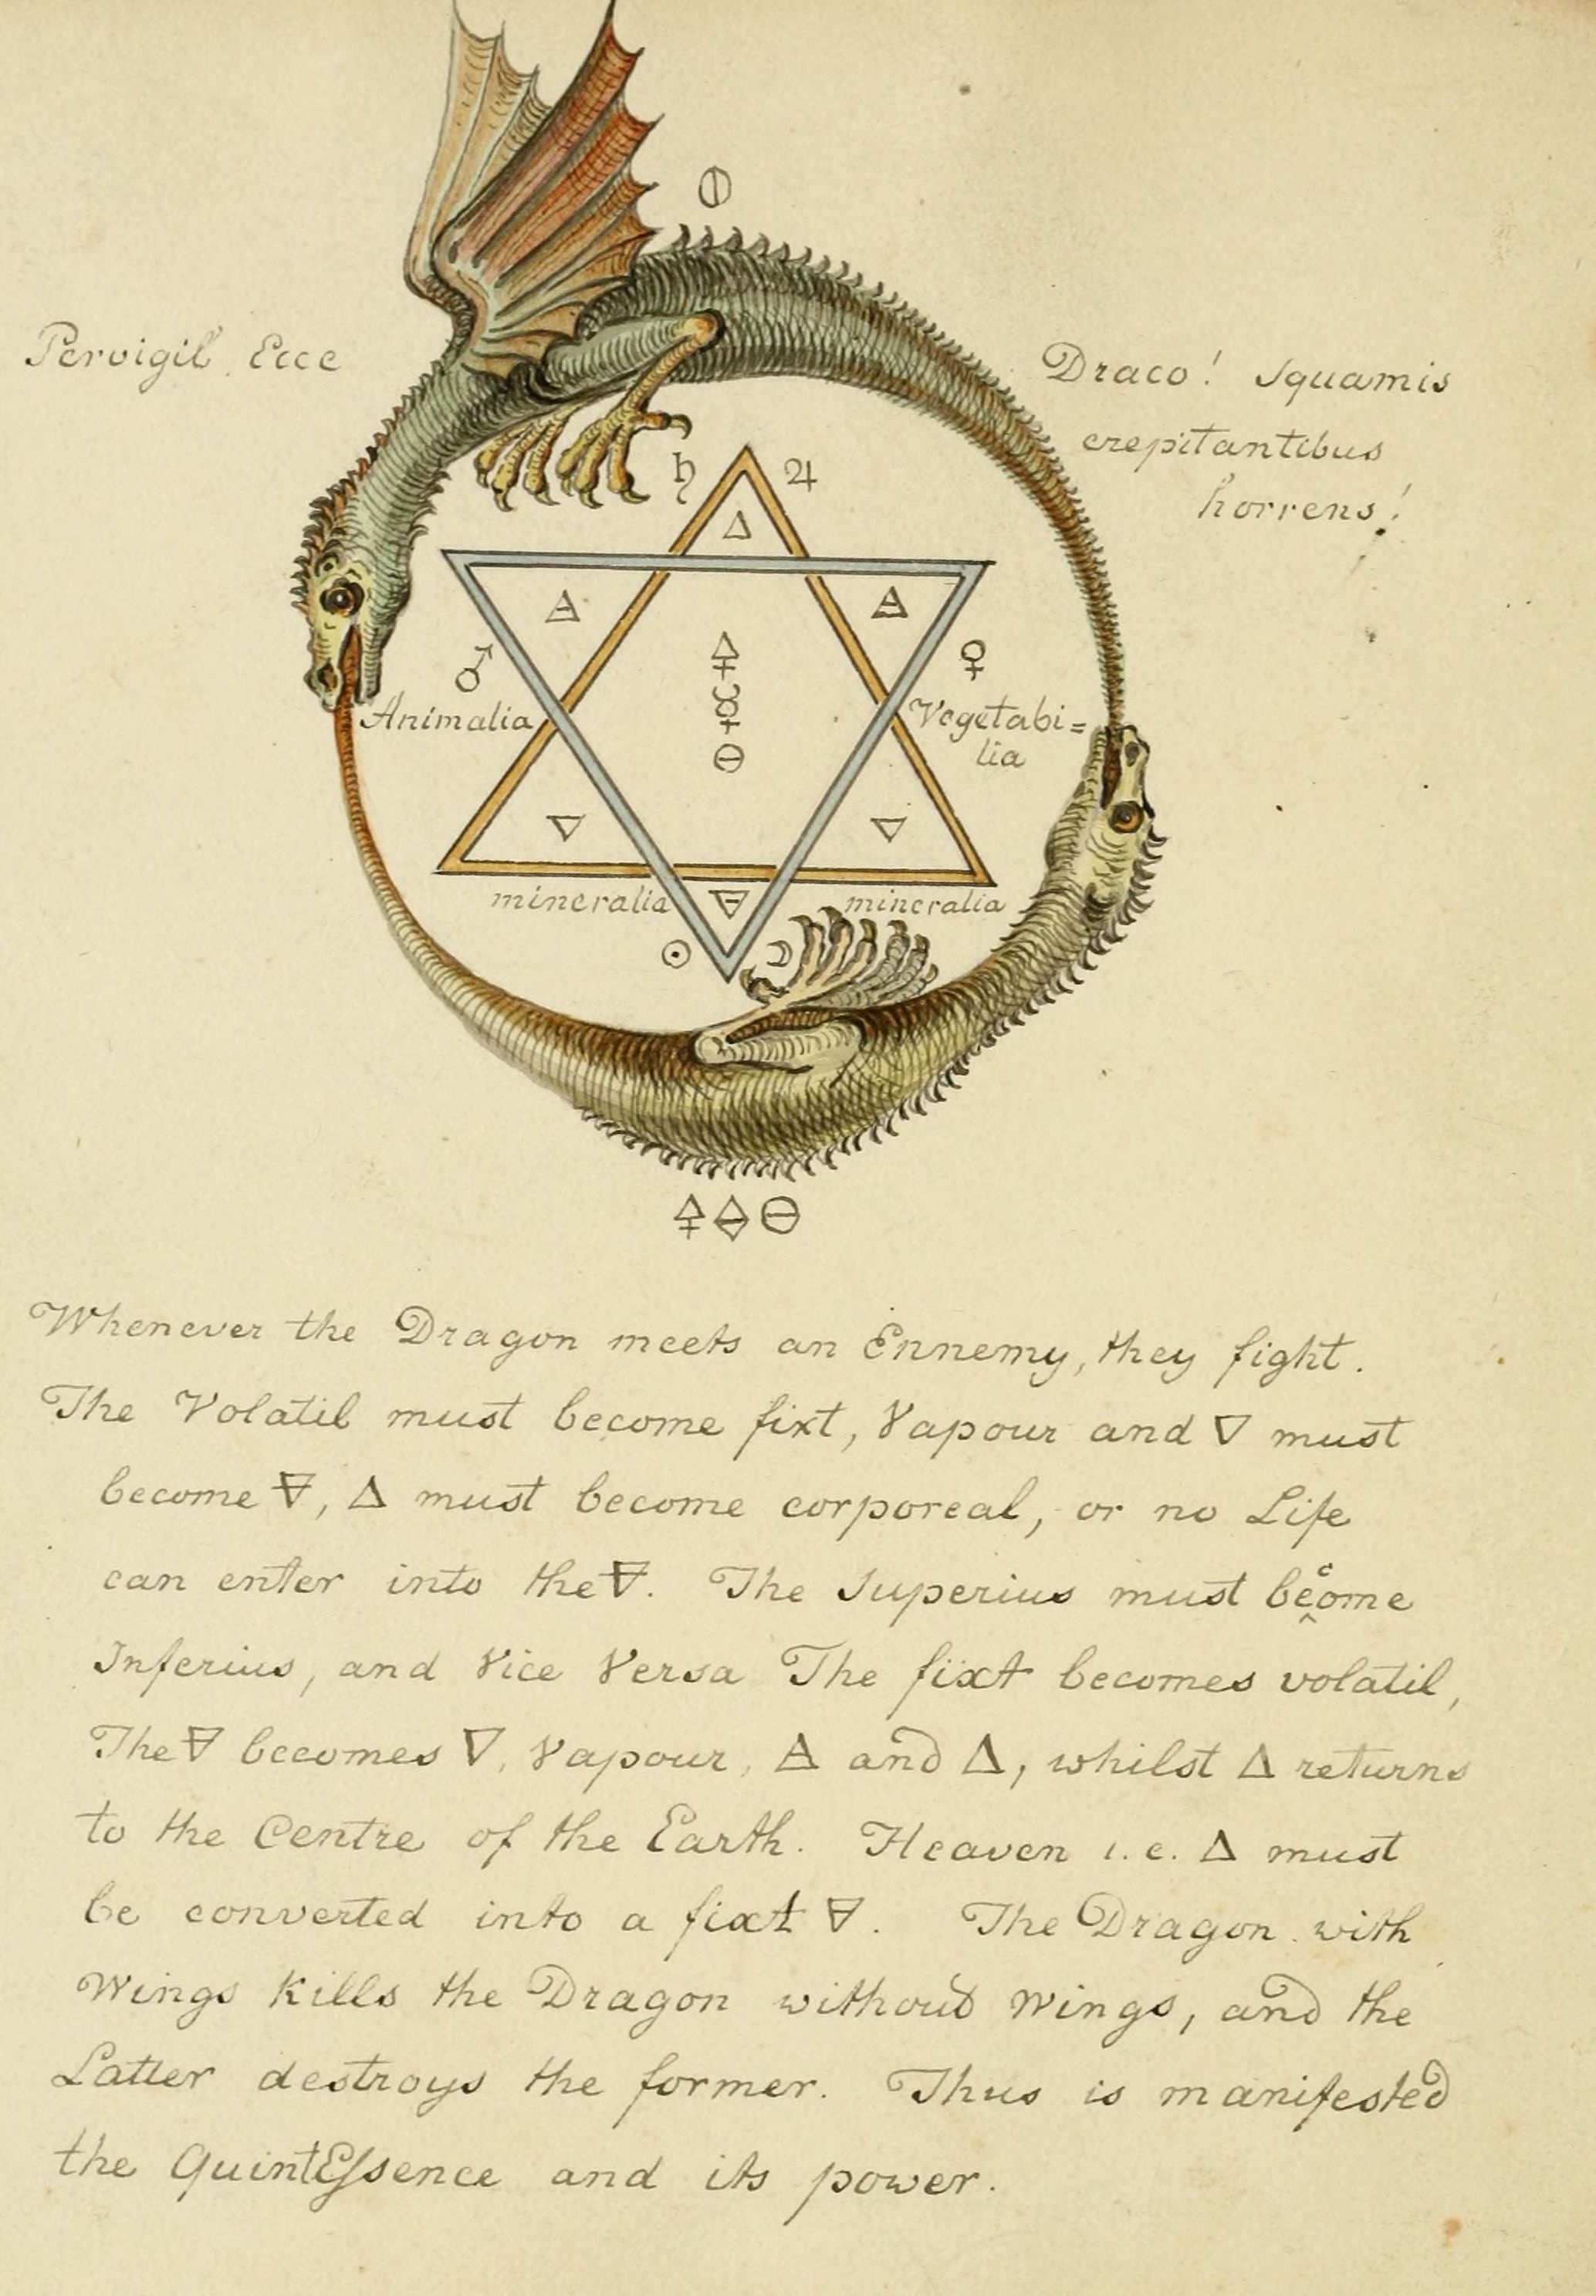 🜕
Pervigil Ecce
Draco! Squamis
crepitantibus
horrens!
♄ ♃
🜂
🜁 🜁
♂ ♀
🜍
☿
🜔
Animalia
Vegetabi=
lia
🜄 🜄
mineralia 🜃 mineralia
☉ ☽
🜍 🜔
Whenever the Dragon meets an Ennemy, they fight.
The Volatil must become fixt, Vapour and 🜄 must
become 🜃, 🜂 must become corporeal, or no Life
can enter into the 🜃. The Superius must become
Inferius, and Vice Versa The fixt becomes volatil,
The 🜃 becomes 🜄, Vapour, 🜁 and 🜂, whilst 🜂 returns
to the Centre of the Earth. Heaven i.e. 🜂 must
be converted into a fixt 🜃. The Dragon with
Wings Kills the Dragon without Wings, and the
Latter destroys the former. Thus is manifested
the QuintEſsence and its power.